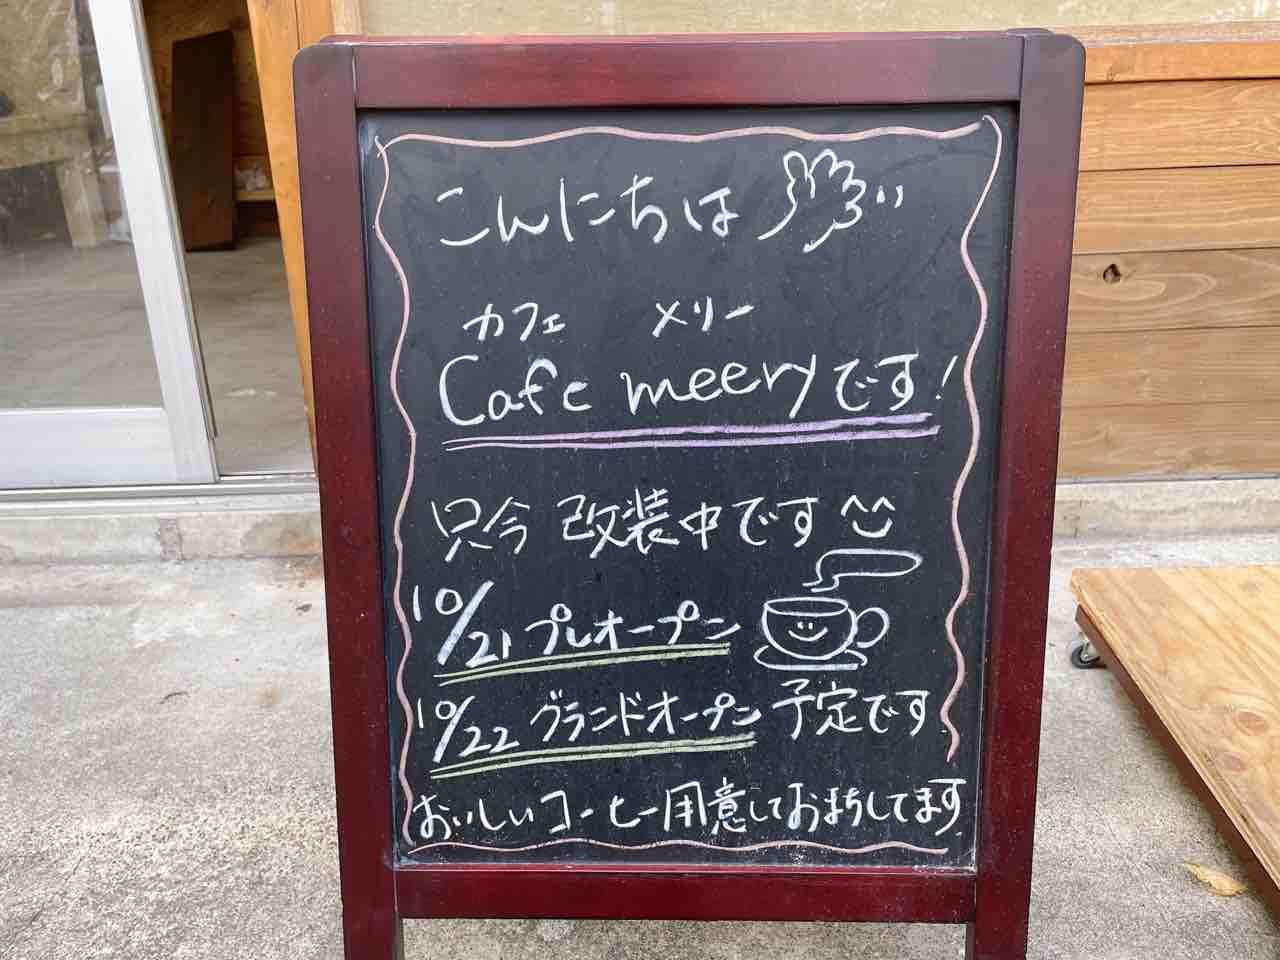 こんにちは
カフェ メリー
Cafe meeryです!
只今 改装中です
10/21 プレオープン
10/22 グランドオープン 予定です。
おいしいコーヒー用意しておまちしてます。